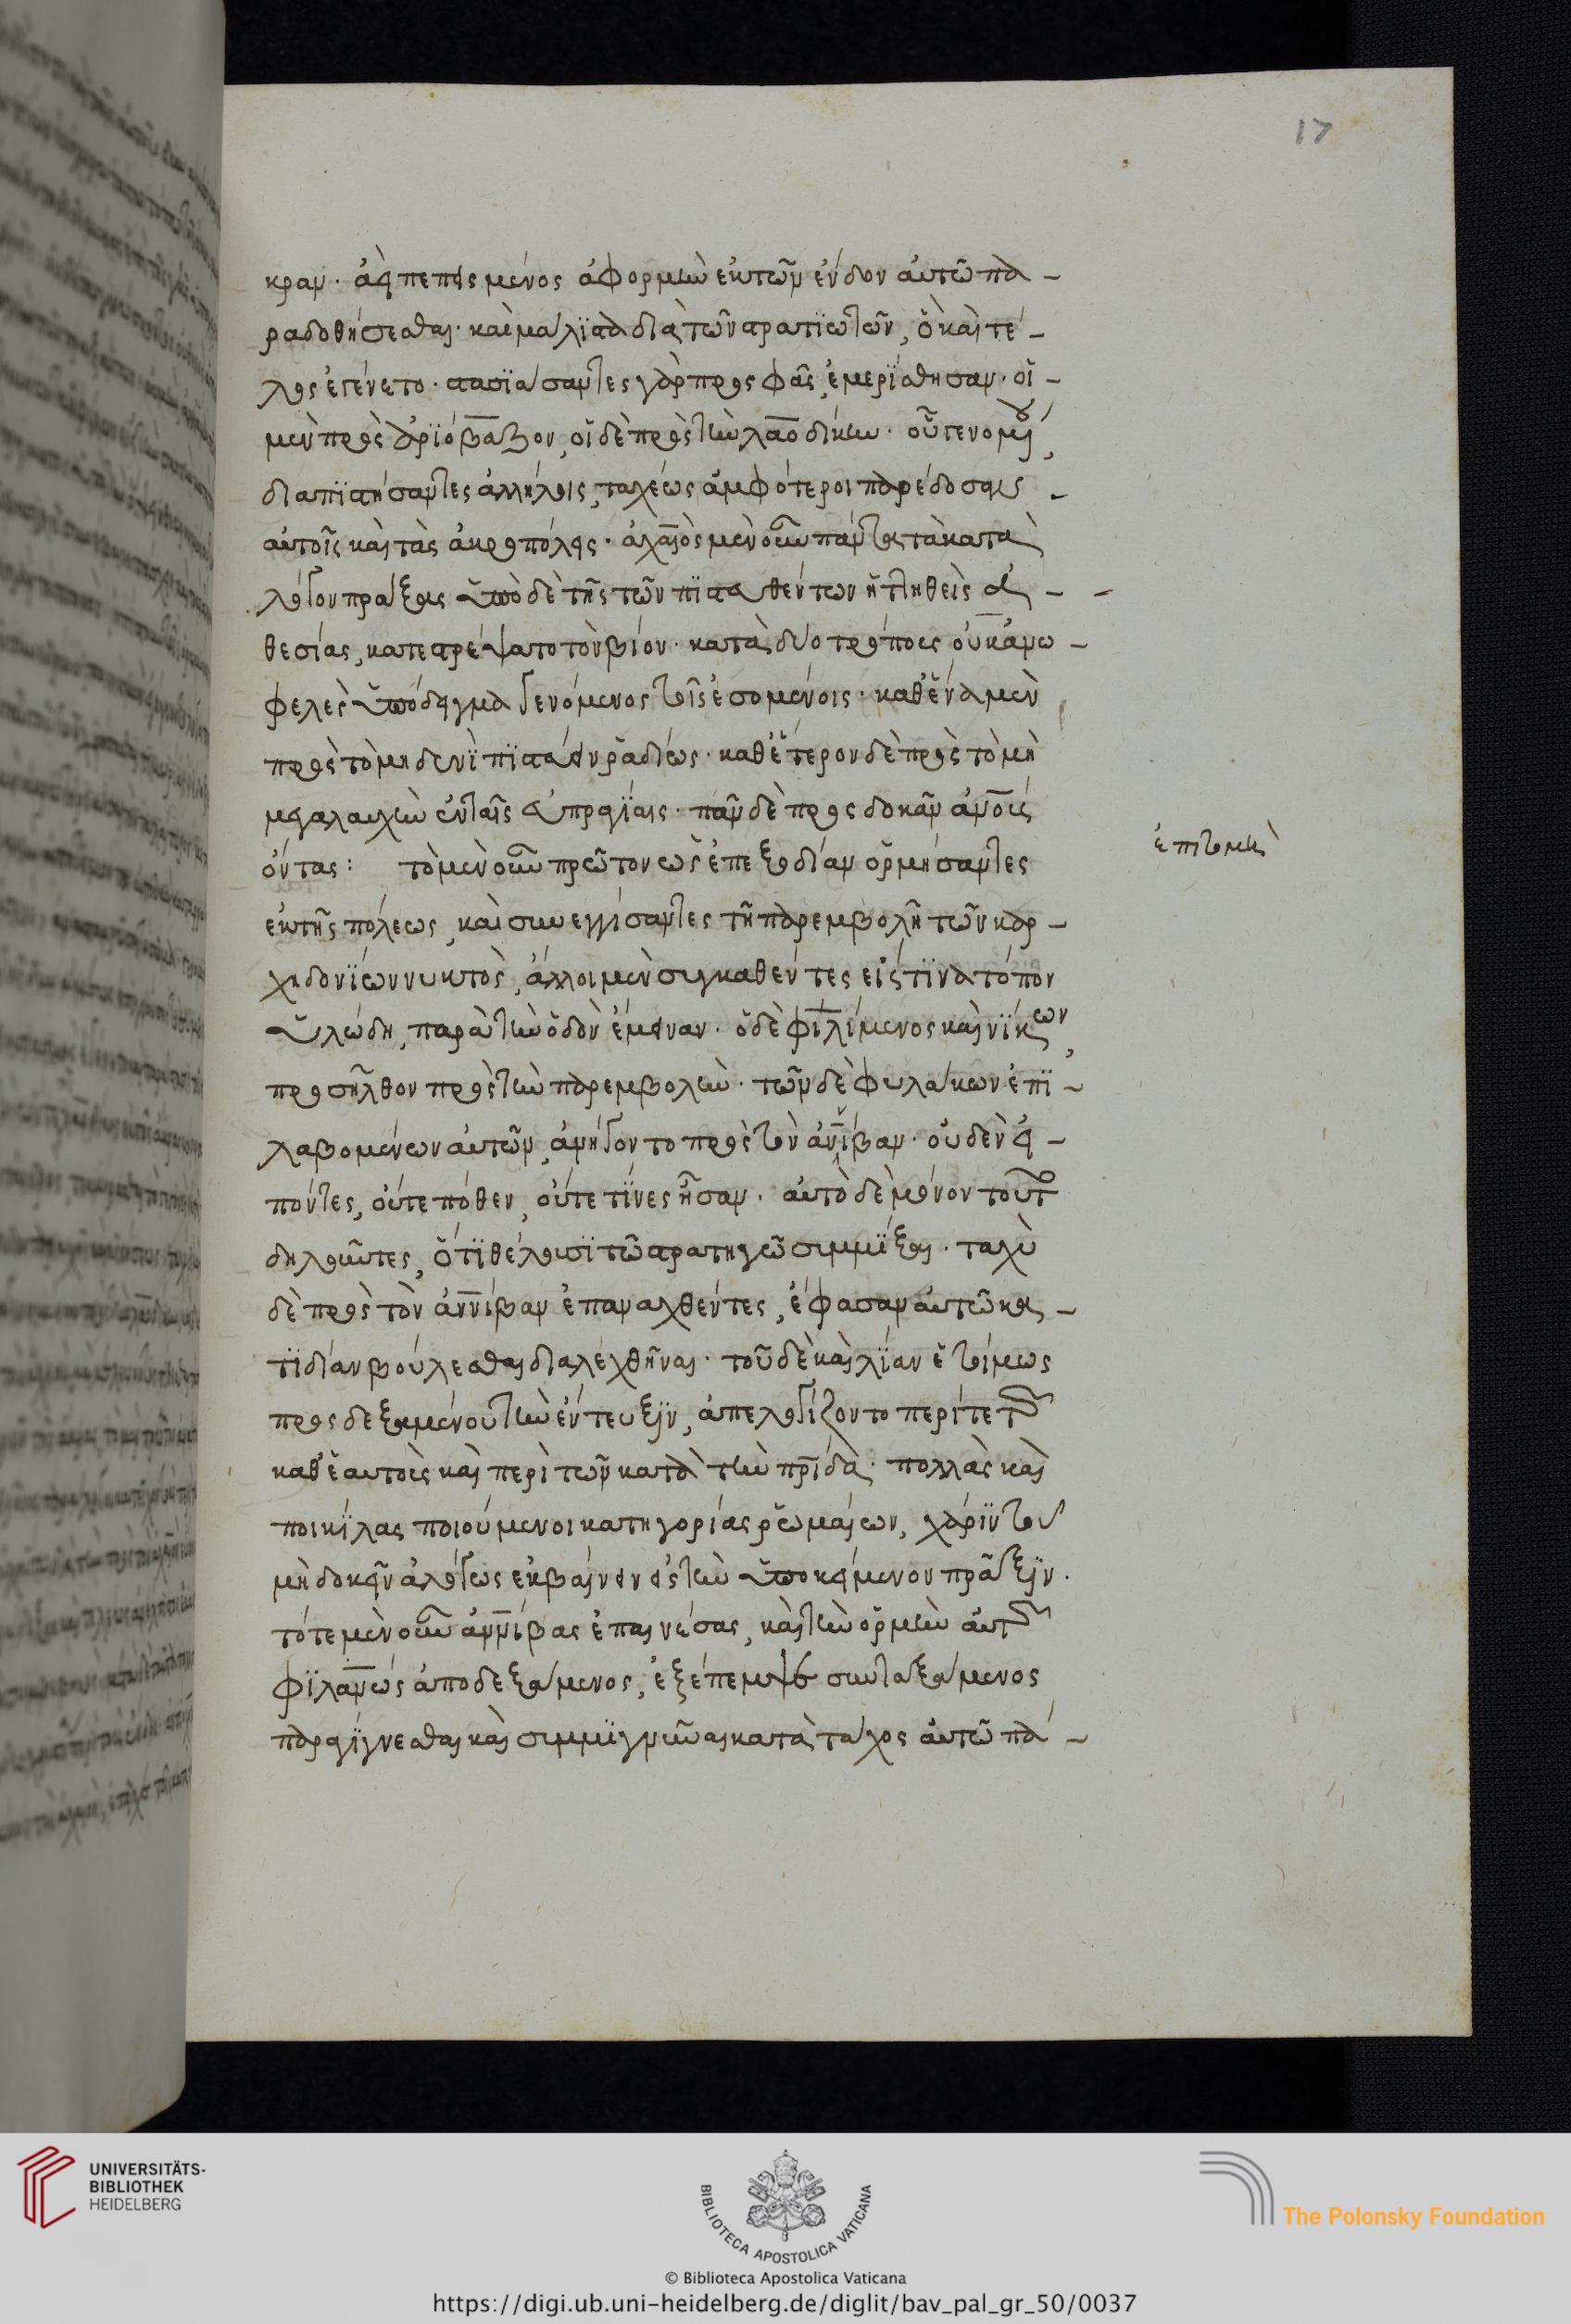 17
κραν· ἀεὶ πεπεισμένος ἀφορμὴν ἐκ τῶν ἔνδον αὐτῶ πα-
ραδοθήσεσθαι· καὶ μάλιστα διὰ τῶν στρατϊωτῶν, ὃ καὶ τέ-
λος ἐγένετο· στασϊάσαντες γὰρ πρὸς σφᾶς, ἐμερίσθησαν· οἱ-
μὲν πρὸς ἀρϊόβαζον, οἱ δὲ πρὸς τὴν λαοδίκην· οὗ γενομένου,
διαπϊστήσαντες ἀλλήλοις, ταχέως ἀμφότεροι παρέδοσαν -
αὑτοῖς καὶ τὰς ἀκροπόλεις· ἀχαιὸς μὲν οὖν πάντα τὰ κατὰ
λόγον πράξας ὑπὸ δὲ τῆς τῶν πϊστευθέντων ἡττηθεὶς ἀ- -
θεσίας, κατεστρέψατο τὸν βίον· κατὰ δύο τρόπους οὐκ ἀνω-
φελὲς ὑπόδειγμα γενόμενος τοῖς ἐσομένοις· καθ' ἕνα μὲν
πρὸς τὸ μηδενὶ πϊστεύειν ῥαδίως· καθ' ἕτερον δὲ πρὸς τὸ μὴ
μεγαλαυχεῖν ἐν ταῖς εὐπραγίαις· πᾶν δὲ προσδοκᾶν ἀνους
ὄντας: τὸ μὲν οὖν πρῶτον ὡς ἐπ' ἐξοδίαν ὁρμήσαντες
ἐπιτομὴ
ἐκ τῆς πόλεως, καὶ συνεγγίσαντες τῆ παρεμβολῆ τῶν καρ-
χηδονϊων νυκτὸς, ἄλλοι μὲν συγκαθέντες εἴς τϊνα τόπον
ὑλώδη, παρὰ τὴν ὁδὸν ἔμειναν· ὁ δὲ φϊλίμενος καὶ νίκων,
προσῆλθον πρὸς τὴν παρεμβολήν· τῶν δὲ φυλάκων ἐπϊ-
λαβομένων αὐτῶν, ἀνήγοντο πρὸς τὸν ἀννίβαν· οὐδὲν εἰ-
πόντες, οὔτε πόθεν, οὔτε τίνες ἦσαν· αὐτὸ δὲ μόνον τοῦτο
δηλοῦντες, ὅτϊ θέλουσϊ τῶ στρατηγῶ συμμίξαι· ταχὺ
δὲ πρὸς τὸν ἀννίβαν ἐπαναχθέντες, ἔφασαν αὐτῶ κα-
τϊδίαν βούλεσθαι διαλεχθῆναι· τοῦ δὲ καὶ λίαν ἑτοίμως
προσδεξαμένου τὴν ἔντευξιν, ἀπελογίζοντο περί τε τῶν
καθ' ἑαυτοὺς καὶ περὶ τῶν κατὰ τὴν πρίδα· πολλὰς καὶ
ποικίλας ποιούμενοι κατηγορίας ῥωμαίων, χάριν τοῦ
μὴ δοκεῖν ἀλόγως ἐκβαίνειν εἰς τὴν ὑποκειμένον πρᾶξιν·
τότε μὲν οὖν ἀννίβας ἐπαινέσας, καὶ τὴν ὁρμὴν αὐτῶν
φϊλανως ἀποδεξάμενος, ἐξέπεμψε συνταξάμενος
παραγίγνεσθαι καὶ συμμϊγνύναι κατὰ τάχος αὐτῶ πά-
UNIVERSITÄTS-
BIBLIOTHEK
HEIDELBERG
BIBLIOTECA APOSTOLICA VATICANA
The Polonsky Foundation
© Biblioteca Apostolica Vaticana
https://digi.ub.uni-heidelberg.de/diglit/bav_pal_gr_50/0037